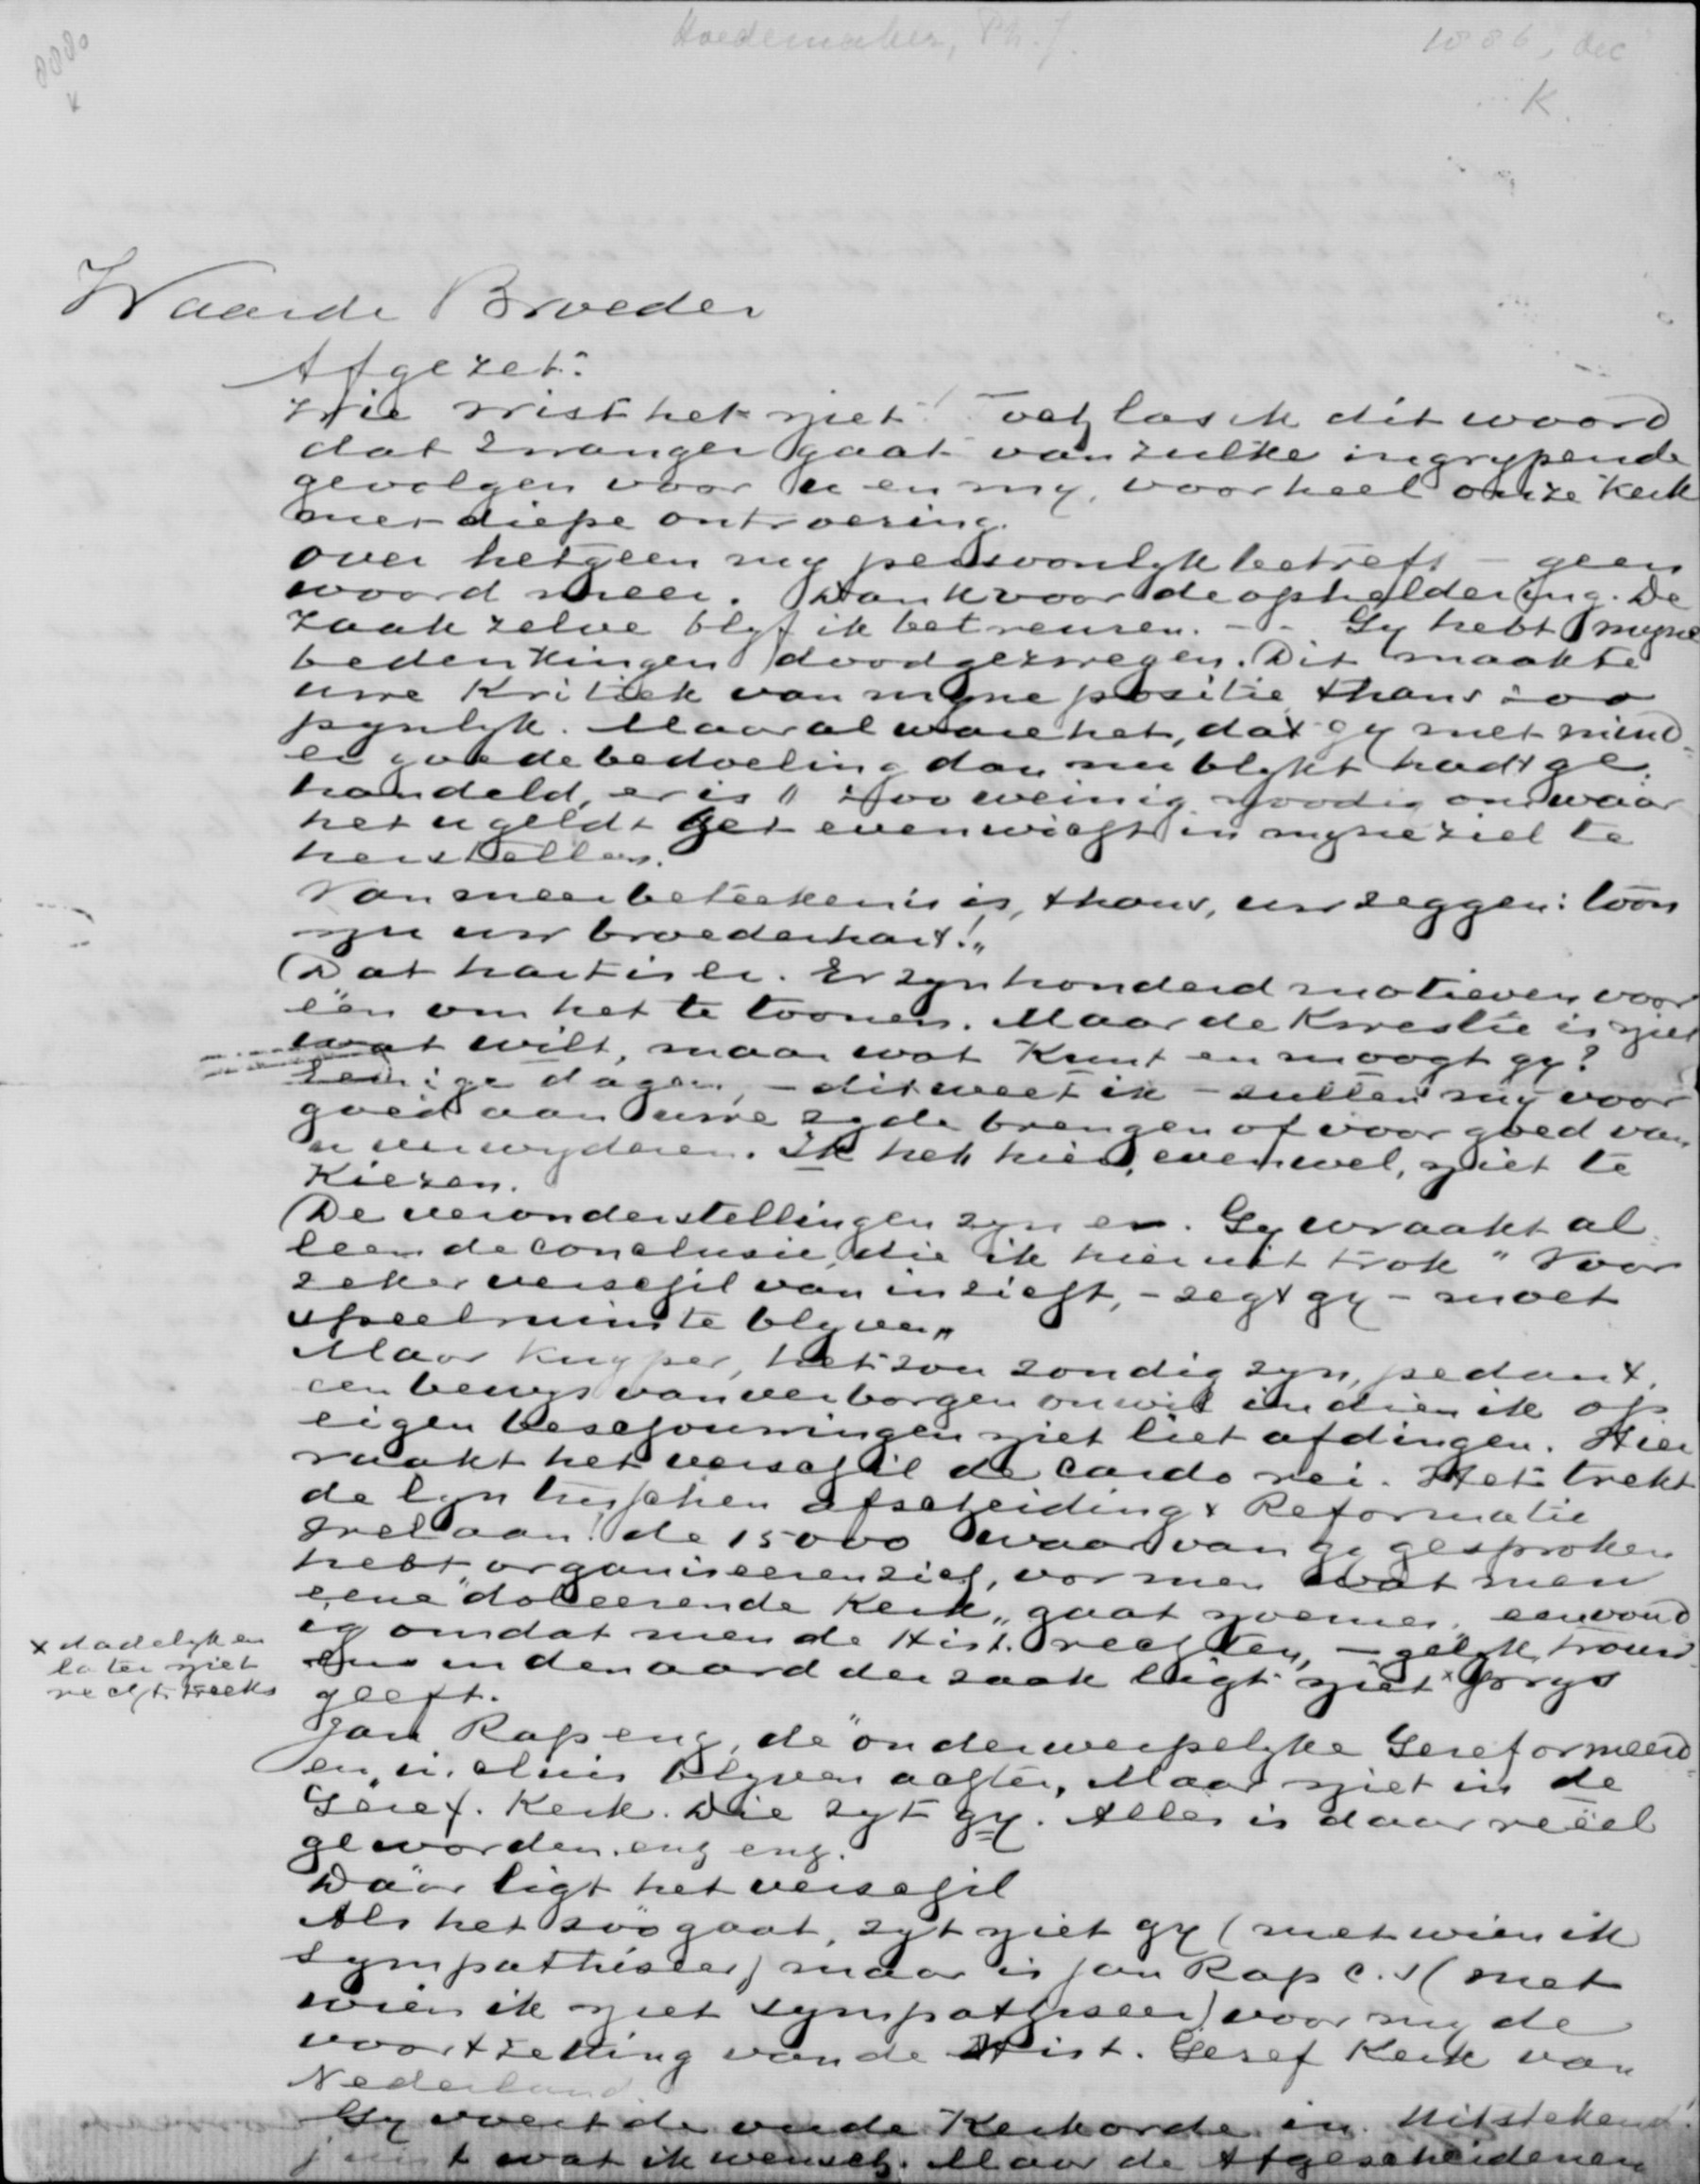 Hoedemaker, Ph. J.
1886, dec
K.
Waarde Broeder
Afgezet!
Wie wist het niet! Toch las ik dit woord
dat zwanger gaat van zulke ingrypende
gevolgen voor u en my, voor heel onze Kerk
met diepe ontroering.
Over hetgeen my persoonlyk betreft – geen
woord meer. Dank voor de opheldering. De
zaak zelve blyf ik betreuren. – – Gy hebt myne
bedenkingen doodgezwegen. Dit maakte
uwe Kritiek van myne positie thans zoo
pynlyk. Maar al ware het, dat gy met mind-
er goede bedoeling dan nu blykt hadt ge-
handeld, er is zoo weinig noodig om waar
het u geldt het evenwicht in myne ziel te
herstellen.
Van meer beteekenis is, thans, uw zeggen: "toon
my uw broederhart!"
Dat hart is er. Er zyn honderd motieven voor
een om het te toonen. Maar de Kwestie is niet
wat wilt, maar wat Kunt en moogt gy?
Eenige dagen, – dit weet ik – zullen my voor
goed aan uwe zyde brengen of voor goed van
u verwyderen. Ik heb hier, evenwel, niet te
Kiezen.
De veronderstellingen zyn er. Gy wraakt al-
leen de conclusie, die ik hieruit trok "Voor
zeker verschil van inzicht, – zegt gy – moet
speelruimte blyven"
Maar Kuyper, het zou zondig zyn, pedant,
een bewys van verborgen onwil indien ik op
eigen beschouwingen niet liet afdingen. Hier
raakt het verschil de cardo rei. Het trekt
de lyn tusschen afscheiding & Reformatie
Snel aan! de 15000 waarvan gy gesproken
hebt, organiseeren zich, vormen wat men
eene "doleerende Kerk" gaat noemen, eenvoud-
ig omdat men de Hist. rechten, – gelyk trouw-
ens in den aard der zaak ligt niet × prys
geeft.
× dadelyk en
later niet
rechtstreeks
Jan Rap enz, de "onderwerpelyke Gereformeerd-
en" incluis blyven achter, Maar niet in de
Geref. Kerk. Die zyt gy. Alles is daar reëel
geworden. enz enz.
Dáár ligt het verschil
Als het zóó gaat, zyt niet gy (met wien ik
sympathiseer) maar is Jan Rap c.s (met
wien ik niet sympathiseer) voor my de
voortzetting van de Hist. Geref Kerk van
Nederland.
Gy voert de oude Kerkorde in. Uitstekend!
juist wat ik wensch. Maar de Afgescheidenen